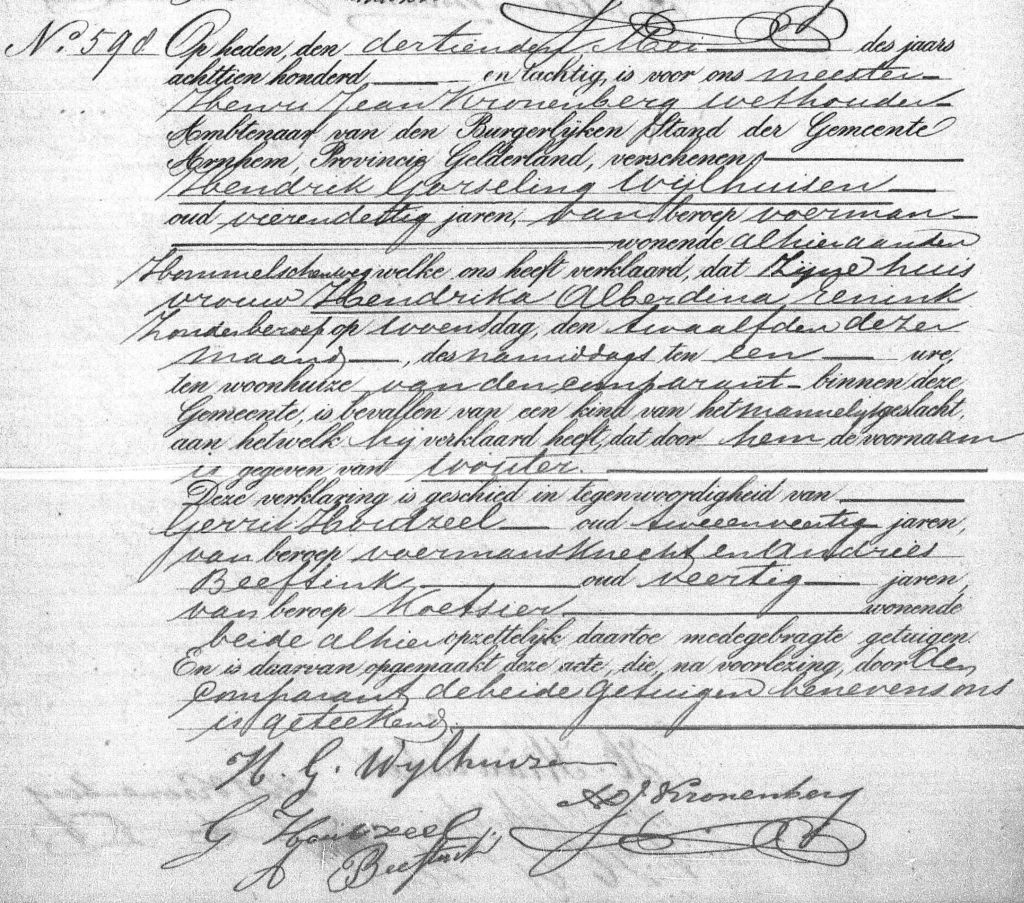 No. 598 Op heden, den dertienden Mei des jaars
achttien honderd en tachtig, is voor ons meester
Henri Jean Kronenberg wethouder
Ambtenaar van den Burgerlijken Stand der Gemeente
Arnhem, Provincie Gelderland, verschenen,
Hendrik Gorseling Wijlhuisen
oud vierendertig jaren, van beroep voerman
wonende alhier aan den
Hommelschenweg welke ons heeft verklaard, dat Zijne huis
vrouw Hendrika Alberdina Renink
Zonder beroep op Woensdag, den twaalfden dezer
maand, des namiddags ten een ure,
ten woonhuize van den comparant binnen deze
Gemeente, is bevallen van een kind van het mannelijk geslacht,
aan hetwelk hij verklaard heeft, dat door hem de voornaam
is gegeven van Wouter.
Deze verklaring is geschied in tegenwoordigheid van
Gerrit Houdzeel oud tweeenveertig jaren,
van beroep voermansknecht en Andries
Beeftink oud veertig jaren,
van beroep Koetsier wonende
beide alhier opzettelijk daartoe medegebragte getuigen.
En is daarvan opgemaakt deze acte, die, na voorlezing, door den
Comparant de beide getuigen benevens ons
is geteekend.
H. G. Wylhuizen
H J Kronenberg
G Houdzeel
A Beeftink